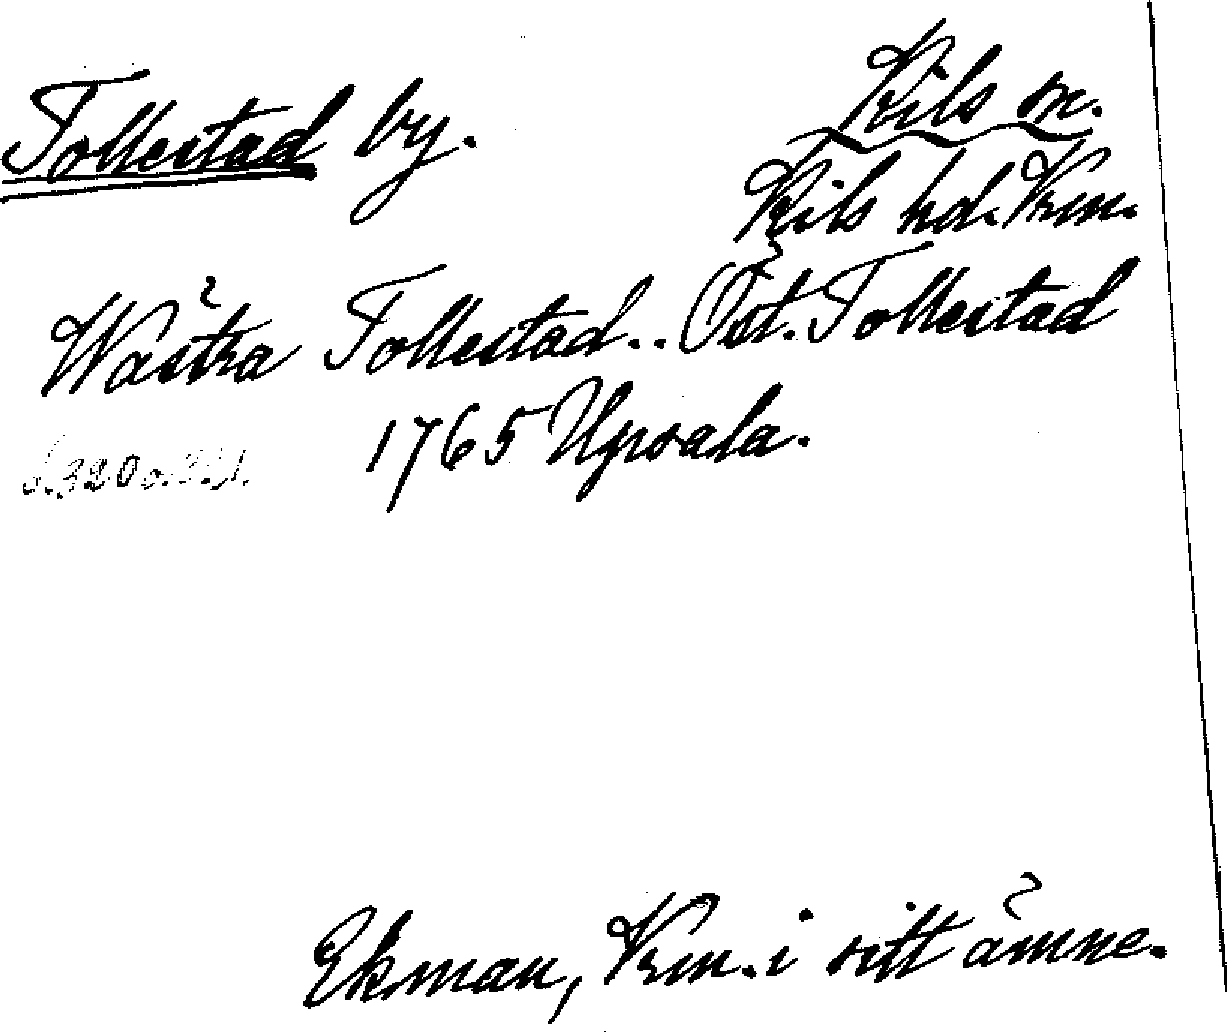 Tollestad by.
Kils sn.
Kils hd. Vrm.
Wästra Tollestad.. Öst. Tollestad
1765 Upsala.
s. 320 o. 321.
Ekman, Vrm. i sitt ämne.